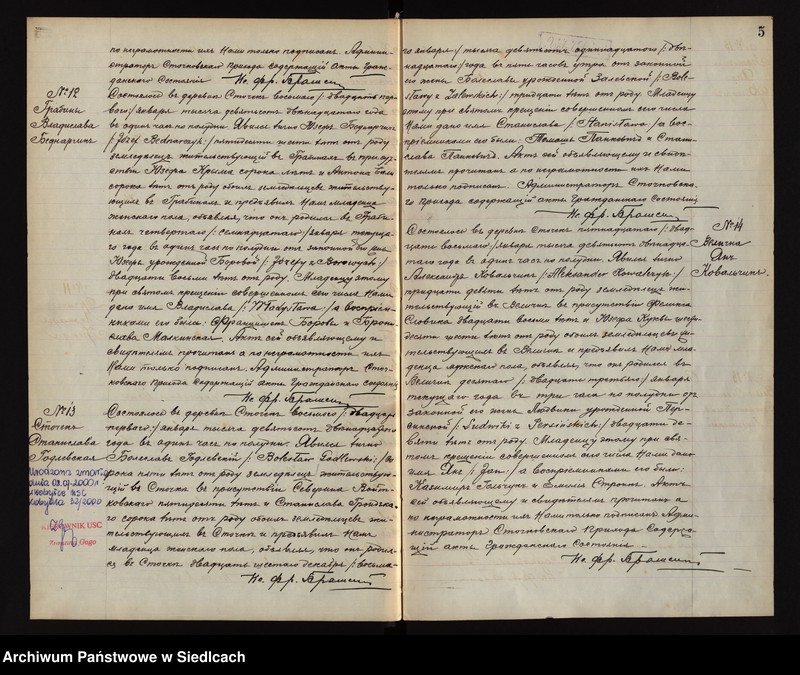 5
по неграмотности ихъ Нами только подписанъ. Админи-
стратор Сточковскаго Прихода содержащій Акты Граж-
данскаго Состоянія
Кс. Фр.
№ 12
Грабины
Владислава
Беднарчикъ
Состоялось въ деревнѣ Сточекъ восьмаго /: двадцать пер-
ваго /: января тысяча девятьсотъ двѣнадцатаго года
въ одинъ часъ по полудни. Явился лично Юзефъ Беднарчикъ
/: Józef Bednarczyk :/ пятидесяти шести лѣтъ отъ роду
земледѣлецъ жительствующій въ Грабинахъ въ присут-
ствіи Юзефа сорока лѣтъ и Антона
сорока лѣтъ отъ роду обоихъ земледѣльцевъ жительству-
ющихъ въ Грабинахъ и предъявилъ Намъ младенца
женскаго пола, объявляя, что онъ родился въ Граби-
нахъ четвертаго /: семнадцатаго /: января текуща-
го года въ одинъ часъ по полудни отъ законной его жены
Юзефы урожденной Боровой /: Józefy z Borowych :/
двадцати восьми лѣтъ отъ роду. Младенцу этому
при святомъ крещеніи совершенномъ сего числа Нами
дано имя Владислава /: Władysława :/ а воспріем-
никами его были: Францишекъ Борови и Брони-
слава Малкинская. Актъ сей объявляющему и
свидѣтелямъ прочитанъ а по неграмотности ихъ
Нами только подписанъ. Администраторъ Сточ-
ковскаго Прихода содержащій акты Гражданскаго Состоянія
Кс. Фр.
№ 13
Сточекъ
Станислава
Годлевская
2000
USC
53/2000
KIEROWNIK USC
Gago
Состоялось въ деревнѣ Сточекъ восьмаго /: двадцать
перваго /: января тысяча девятьсотъ двѣнадцатаго
года въ одинъ часъ по полудни. Явился лично
Болеславъ Годлевскій /: Bolesław Godlewski :/ со-
рока пяти лѣтъ отъ роду земледѣлецъ жительствую-
щій въ Сточкѣ въ присутствіи Северина Войт-
ковскаго пятидесяти лѣтъ и Станислава
го сорока лѣтъ отъ роду обоихъ земледѣльцевъ жи-
тельствующихъ въ Сточкѣ и предъявилъ Намъ
младенца женскаго пола, объявляя, что онъ родил-
ся въ Сточкѣ двадцать шестаго декабря /: восьма-
Кс. Фр.
го января :/ тысяча девятьсотъ одиннадцатаго /: двѣ-
надцатаго :/ года въ пять часовъ утра отъ законной
его жены Болеславы урожденной Залевской /: Bole-
sławy z Zalewskich :/ тридцати лѣтъ отъ роду. Младенцу
этому при святомъ крещеніи совершенномъ сего числа
Нами дано имя Станислава /: Stanisława :/ а вос-
пріемниками его были: Томашъ Панкевичъ и Стани-
слава Панкевичъ. Актъ сей объявляющему и свидѣ-
телямъ прочитанъ а по неграмотности ихъ Нами
только подписанъ. Администраторъ Сточковска-
го Прихода содержащій акты Гражданскаго Состоянія
Кс. Фр.
№ 14
Янъ
Ковальчикъ
Состоялось въ деревнѣ Сточекъ пятнадцатаго /: двад-
цати восьмаго :/ января тысяча девятьсотъ двѣнадца-
таго года въ одинъ часъ по полудни. Явился лично
Александръ Ковальчикъ /: Aleksander Kowalczyk :/
тридцати девяти лѣтъ отъ роду земледѣлецъ жи-
тельствующій въ въ присутствіи Феликса
двадцати восьми лѣтъ и Юзефа шести-
десяти шести лѣтъ отъ роду обоихъ земледѣльцевъ жи-
тельствующихъ въ и предъявилъ Намъ мла-
денца мужскаго пола, объявляя, что онъ родился въ
десятаго /: двадцать третьяго /: января
текущаго года въ три часа по полудни отъ
законной его жены Людвики урожденной
/: Ludwiki z :/ двадцати де-
вяти лѣтъ отъ роду. Младенцу этому при свя-
томъ крещеніи совершенномъ сего числа Нами дано
имя Янъ /: Jan :/ а воспріемниками его были:
Казимиръ и Емилія Актъ
сей объявляющему и свидѣтелямъ прочитанъ а
по неграмотности ихъ Нами только подписанъ. Адми-
нистраторъ Сточковскаго Прихода Содержа-
щій акты Гражданскаго Состоянія
Кс. Фр.
Archiwum Państwowe w Siedlcach